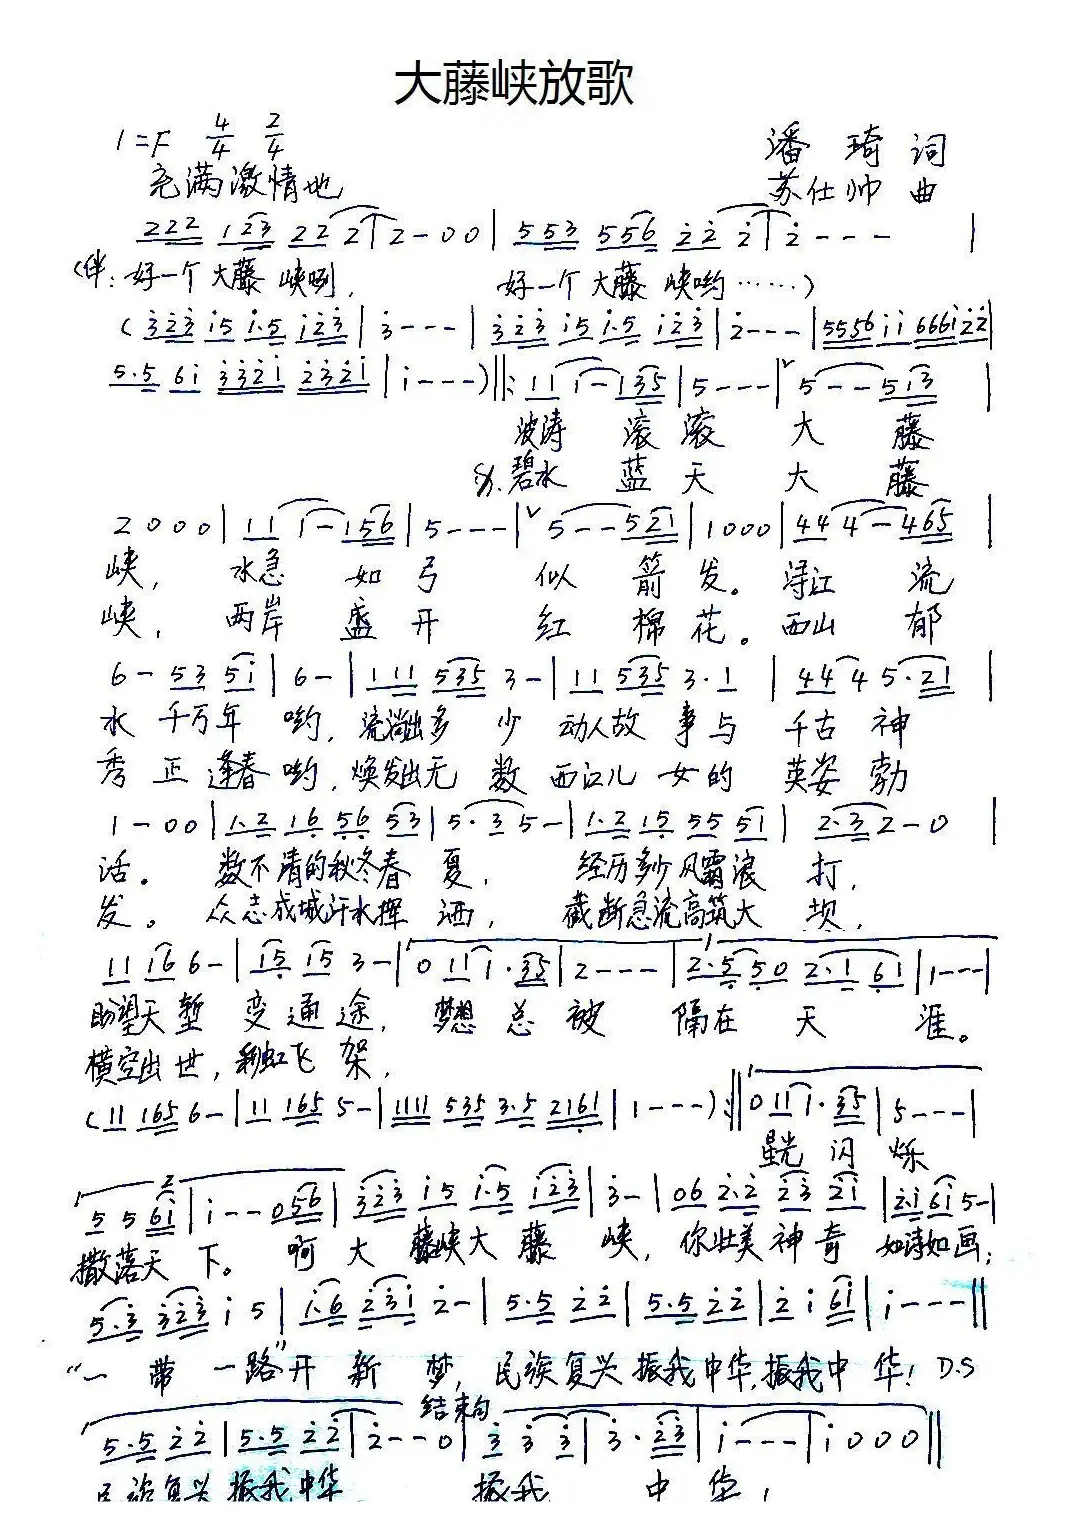 大藤峡放歌
1=F 4/4 2/4
潘琦词
充满激情地
苏仕帅 曲
222 123 22 2 | 2-00 | 553 556 22 2 | 2--- |
(伴:好一个大藤峡咧, 好一个大藤峡哟……)
(323 15 1·5 123 | 3--- | 323 15 1·5 123 | 2--- | 5556 11 666122 |
5·5 61 3321 2321 | 1---)‖: 11 1-135 | 5--- |ˇ5--513 |
波涛 滚滚 大 藤
碧水 蓝天 大 藤
2000 | 11 1-156 | 5--- |ˇ5--521 | 1000 | 44 4-465 |
峡, 水急 如弓 似 箭发。浔江 流
峡, 两岸 盛开 红 棉花。西山 郁
6- 53 51 | 6- | 111 535 3- | 11 535 3·1 | 44 4 5·21 |
水 千万年 哟, 流淌出多 少 动人故 事与 千古 神
秀 正逢春哟, 焕发出无 数 西江儿 女的 英姿 勃
1-00 | 1·2 16 56 53 | 5·3 5- | 1·2 15 55 51 | 2·3 2-0 |
话。 数不清的秋冬春 夏, 经历多少风霜浪 打,
发。 众志成城汗水挥 洒, 截断急流高筑大 坝,
11 16 6- | 15 15 3- | 0 11 1·35 | 2--- | 2·5 50 2·1 61 | 1--- |
盼望天堑 变通途, 梦想 总 被 隔在 天 涯。
横空出世, 彩虹飞 架,
(11 165 6- | 11 165 5- | 1111 535 3·5 2161 | 1---) :‖ 0 11 1·35 | 5--- |
星光 闪 烁
5 5 61 | 1--056 | 323 15 1·5 123 | 3- | 06 2·2 23 21 | 2·1 61 5- |
撒落天 下。 啊 大 藤峡大 藤 峡, 你壮美神奇 如诗如画;
5·3 323 1 5 | 1·6 231 2- | 5·5 22 | 5·5 22 | 2 1 61 | 1--- ‖
“一 带 一路”开 新 梦, 民族复兴 振我中华,振我中 华! D.S
结束句
5·5 22 | 5·5 22 | 2--0 | 3 3 3 | 3·23 | 1--- | 1000 ‖
民族复兴 振我中华 振我 中 华!